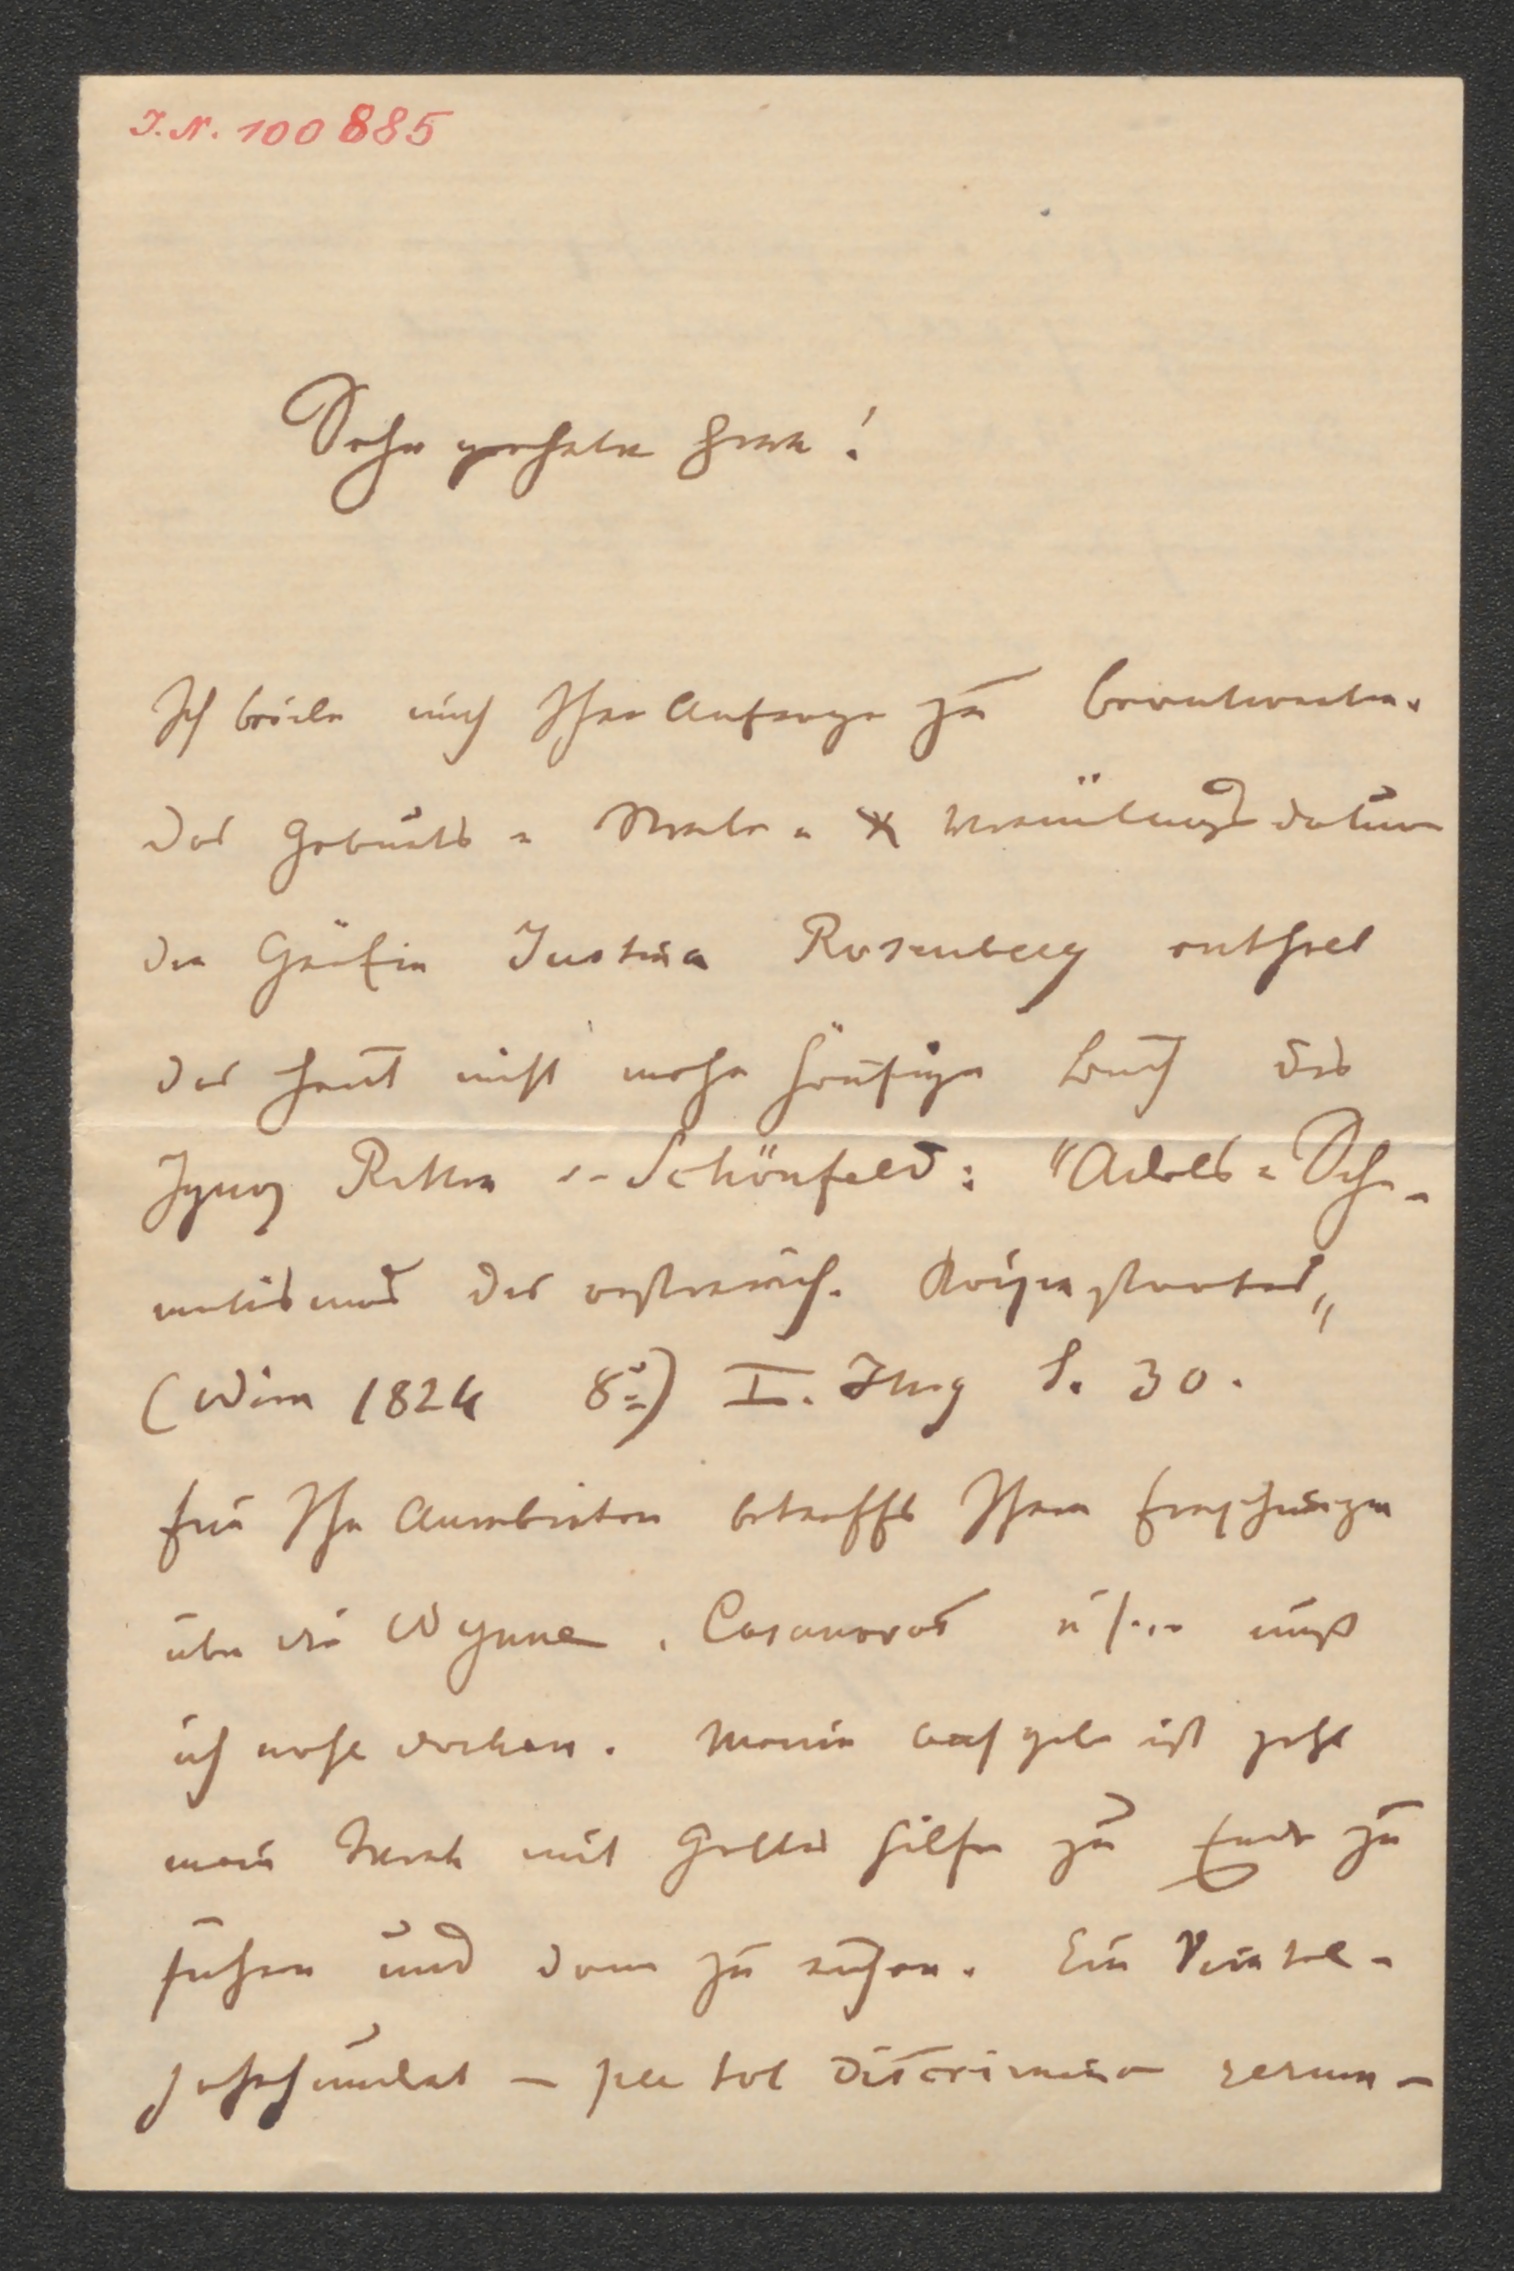 I.N. 100885
Sehr geehrter Herr!
Ich beeile mich Ihre Anfrage zu beantworten.
Das Geburts- Sterbe- & Vermälungsdatum
der Gräfin Justina Rosenberg enthält
das heut nicht mehr häufige Buch des
Ignaz Ritter v. Schönfeld: "Adels-Sche-
matismus des österreich. Kaiserstaates"
(Wien 1824 8o) I. Jhrg S. 30.
für Ihr Anerbieten betreffs Ihrer Forschungen
über die Wynne, Casanovas muß
ich danken. Meine Aufgabe ist jetzt
mein Werk mit Gottes Hilfe zu Ende zu
führen und dann zu ruhen. Ein Viertel-
jahrhundert – per tot discrimina rerum –